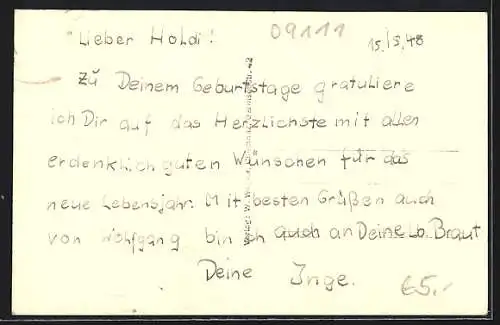 Lieber Holdi!
09111
15./5.48
Zu Deinem Geburtstage gratuliere
ich Dir auf das Herzlichste mit allen
erdenklich guten Wünschen für das
neue Lebensjahr. Mit besten Grüßen auch
von Wolfgang bin ich auch an Deine lb. Braut
Deine Inge.
€5,-